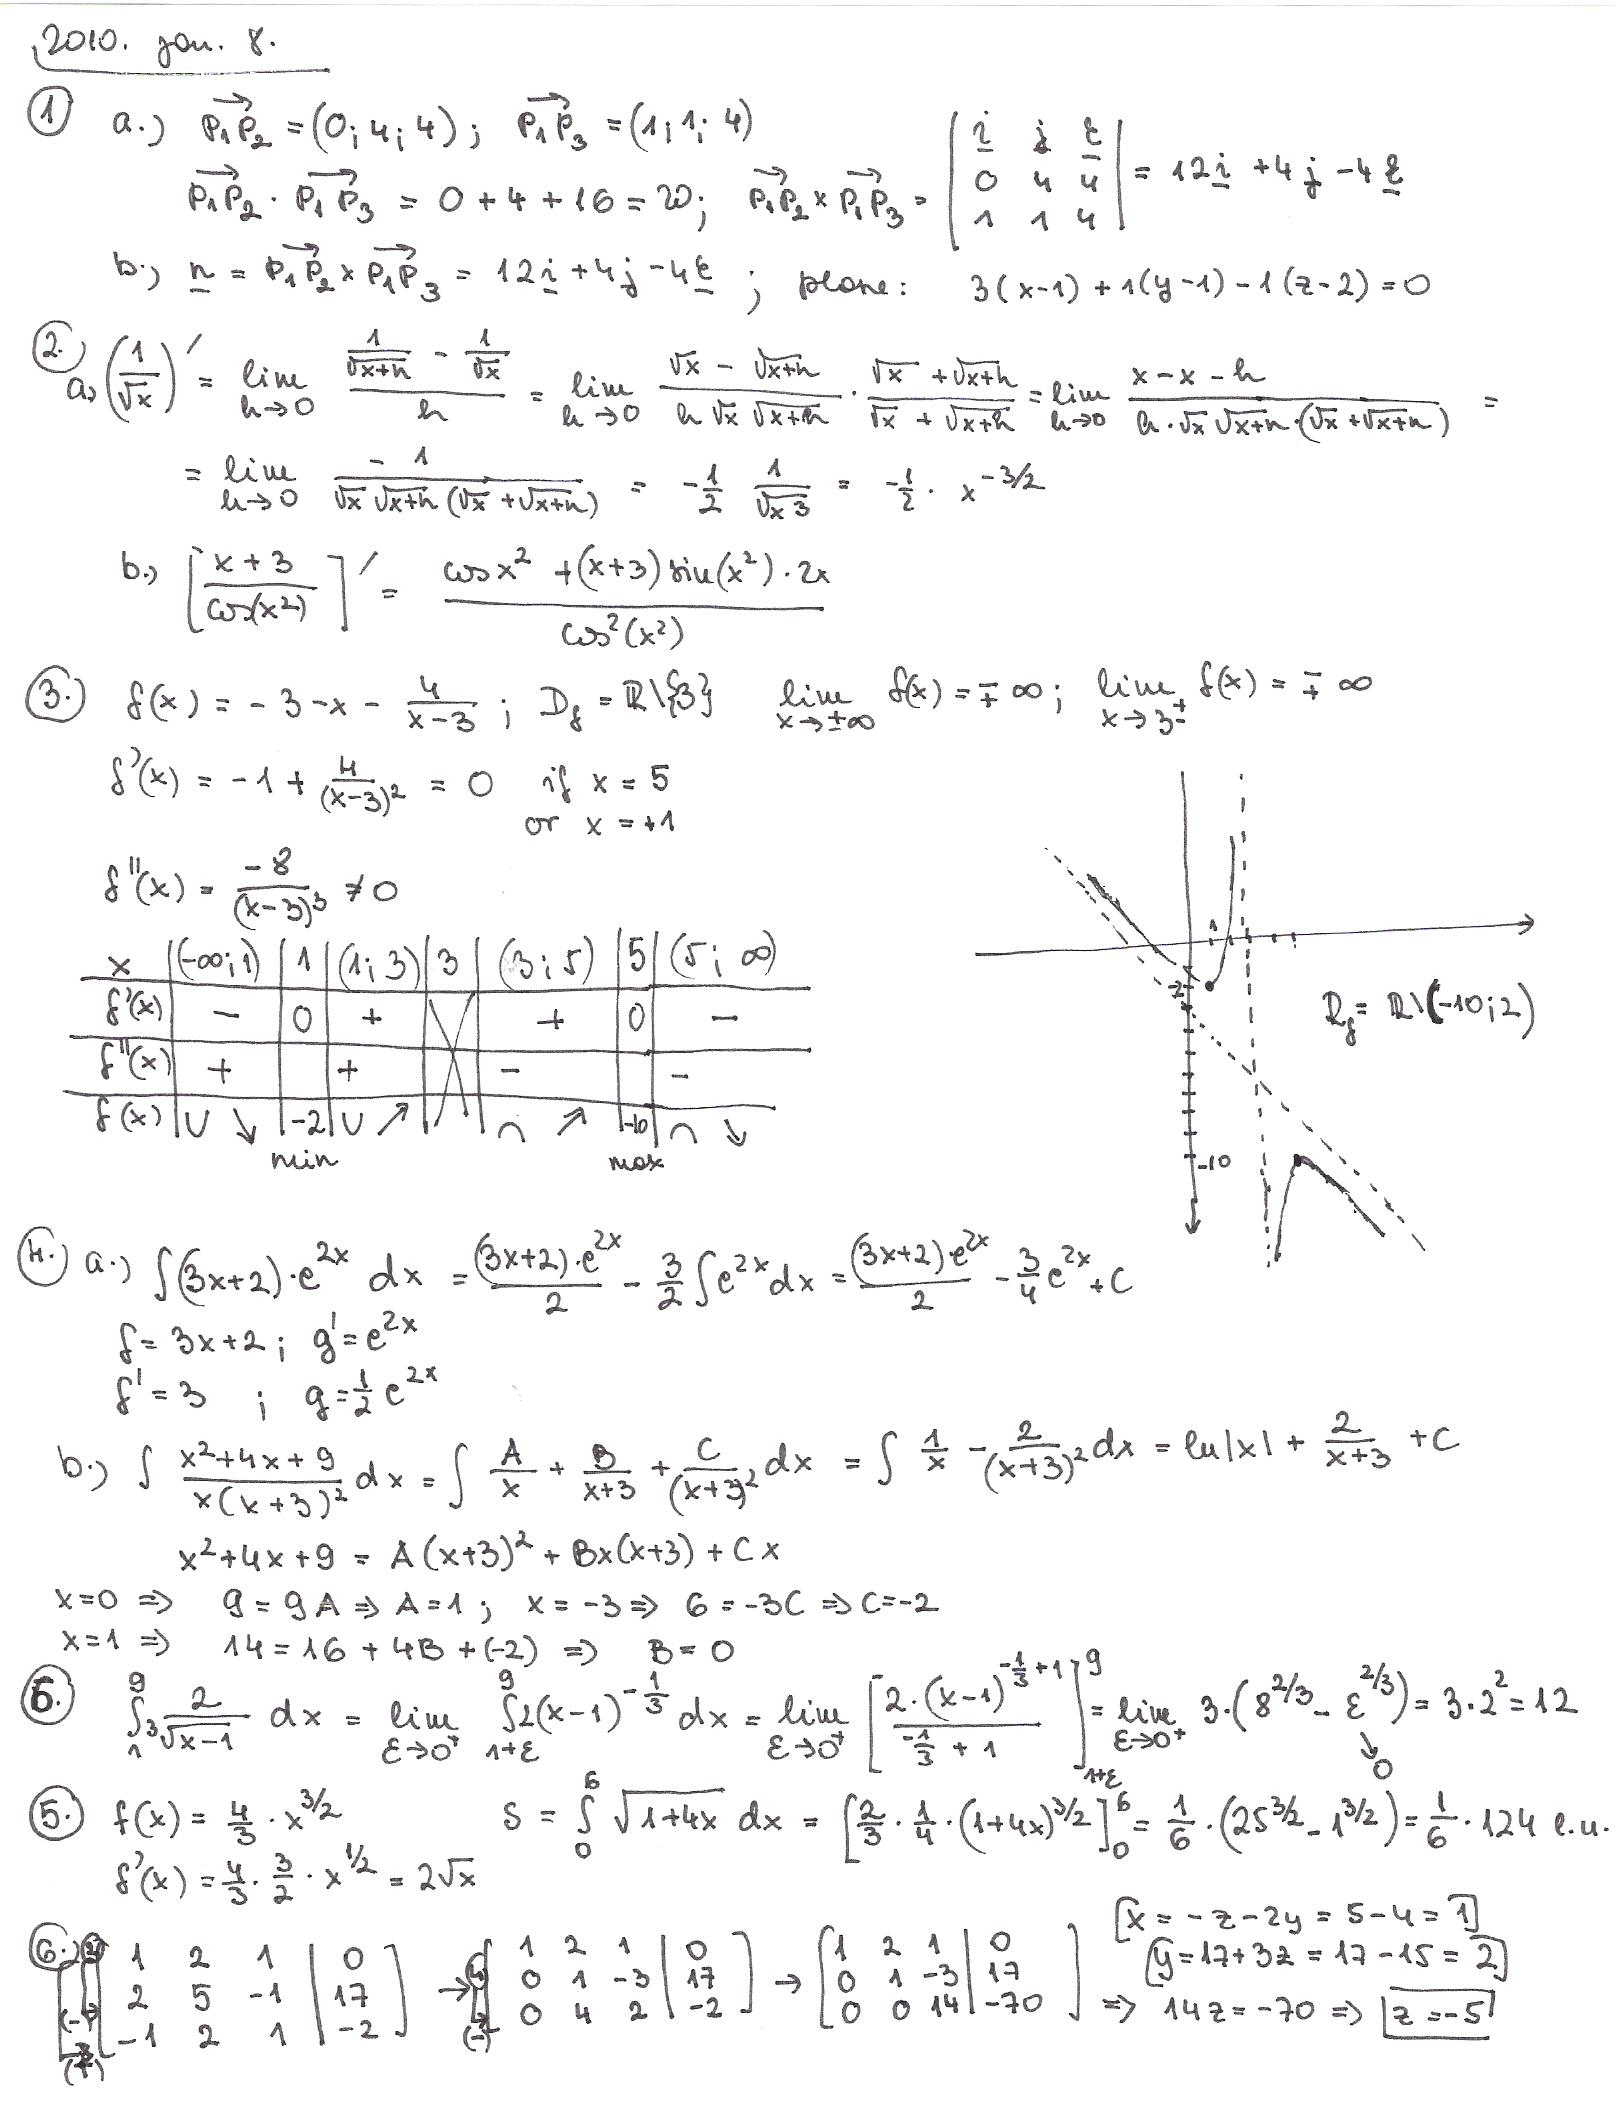 2010. jan. 8.
① a.) P₁P₂ = (0; 4; 4); P₁P₃ = (1; 1; 4)
P₁P₂ · P₁P₃ = 0 + 4 + 16 = 20; P₁P₂ × P₁P₃ = | i j k ; 0 4 4 ; 1 1 4 | = 12i + 4j - 4k
b.) n = P₁P₂ × P₁P₃ = 12i + 4j - 4k ; plane: 3(x-1) + 1(y-1) - 1(z-2) = 0
②. a) (1/√x)' = lim h→0 (1/√(x+h) - 1/√x)/h = lim h→0 (√x - √(x+h))/(h √x √(x+h)) · (√x + √(x+h))/(√x + √(x+h)) = lim h→0 (x - x - h)/(h · √x √(x+h) · (√x + √(x+h))) =
= lim h→0 -1/(√x √(x+h) (√x + √(x+h))) = -1/2 1/√x3 = -1/2 · x^(-3/2)
b.) [(x+3)/cos(x²)]' = (cos x² + (x+3) sin(x²) · 2x)/cos²(x²)
③. f(x) = -3 - x - 4/(x-3) ; D_f = ℝ\{3} lim x→±∞ f(x) = ∓∞; lim x→3± f(x) = ∓∞
f'(x) = -1 + 4/(x-3)² = 0 if x = 5
or x = +1
f''(x) = -8/(x-3)³ ≠ 0
x | (-∞; 1) | 1 | (1; 3) | 3 | (3; 5) | 5 | (5; ∞)
f'(x) | - | 0 | + | | + | 0 | -
f''(x) | + | | + | | - | | -
f(x) | ∪ ↘ | -2 | ∪ ↗ | | ∩ ↗ | -10 | ∩ ↘
min max
1
-2
-10
R_f = ℝ\(-10; 2)
④. a.) ∫(3x+2) · e^(2x) dx = (3x+2) · e^(2x)/2 - 3/2 ∫e^(2x) dx = (3x+2) e^(2x)/2 - 3/4 e^(2x) + C
f = 3x+2 ; g' = e^(2x)
f' = 3 ; g = 1/2 e^(2x)
b.) ∫ (x²+4x+9)/(x(x+3)²) dx = ∫ A/x + B/(x+3) + C/(x+3)² dx = ∫ 1/x - 2/(x+3)² dx = ln|x| + 2/(x+3) + C
x²+4x+9 = A(x+3)² + Bx(x+3) + Cx
x=0 ⇒ 9 = 9A ⇒ A=1 ; x = -3 ⇒ 6 = -3C ⇒ C=-2
x=1 ⇒ 14 = 16 + 4B + (-2) ⇒ B = 0
6. ∫₁⁹ 2/³√(x-1) dx = lim ε→0⁺ ∫_(1+ε)^9 2(x-1)^(-1/3) dx = lim ε→0⁺ [2·(x-1)^(-1/3+1)/(-1/3+1)]_(1+ε)^9 = lim ε→0⁺ 3·(8^(2/3) - ε^(2/3)) = 3·2² = 12
↘ 0
⑤. f(x) = 4/3 · x^(3/2) S = ∫₀⁶ √(1+4x) dx = [2/3 · 1/4 · (1+4x)^(3/2)]₀⁶ = 1/6 · (25^(3/2) - 1^(3/2)) = 1/6 · 124 l.u.
f'(x) = 4/3 · 3/2 · x^(1/2) = 2√x
[x = -z - 2y = 5 - 4 = 1]
⑥. 1 2 1 | 0 → 1 2 1 | 0 → 1 2 1 | 0 [y = 17+3z = 17 - 15 = 2]
2 5 -1 | 17 0 1 -3 | 17 0 1 -3 | 17
-1 2 1 | -2 0 4 2 | -2 0 0 14 | -70 ⇒ 14z = -70 ⇒ [z = -5]